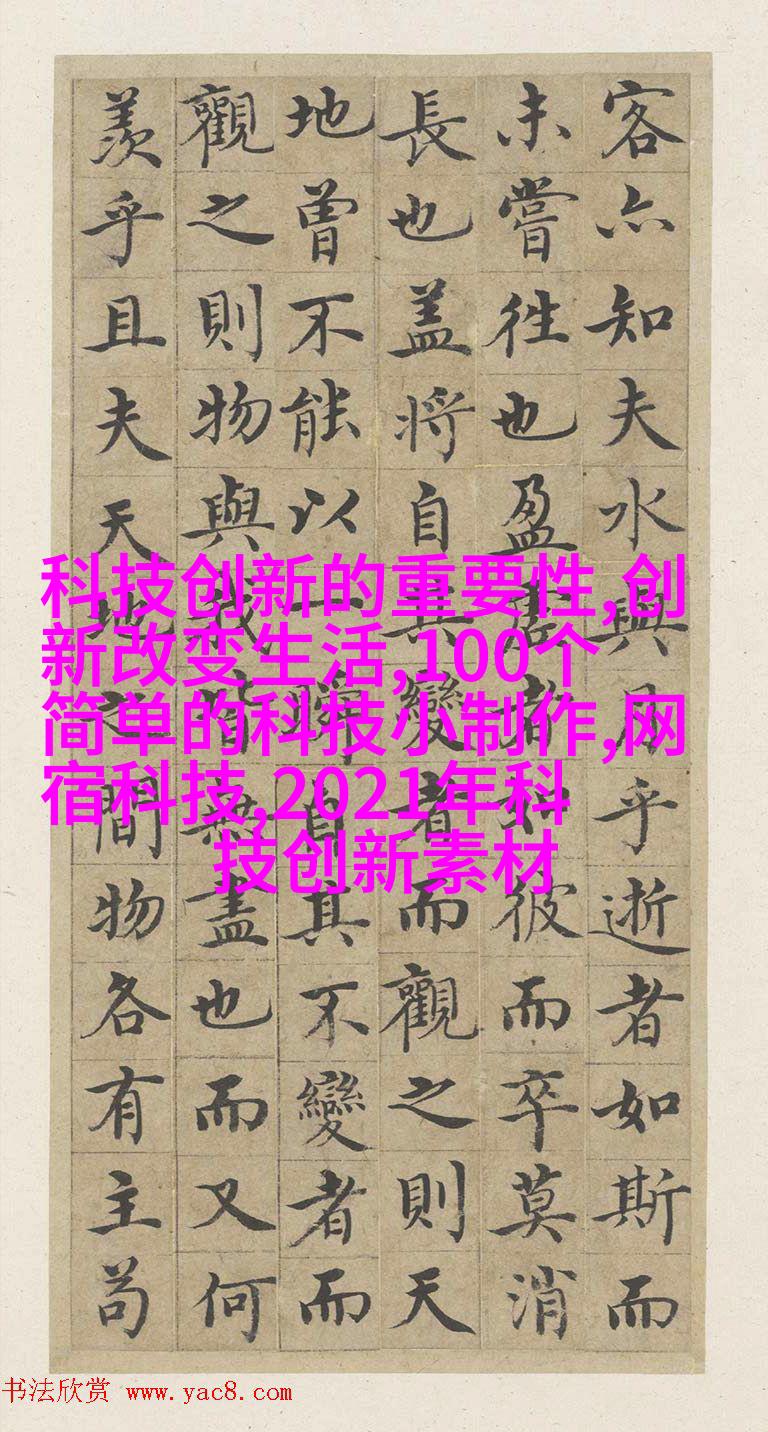 客亦知夫水與月乎逝者如斯而
未嘗往也盈虛者如彼而卒莫消
長也盖将自其變者而觀之則天
地曾不能以一瞬自其不變者而
觀之則物與我皆無盡也而又何
羨乎且夫天地之間物各有主苟
科技创新的重要性,创
新改变生活,100个
简单的科技小制作,网
宿科技,2021年科
技创新素材
书法欣赏 www.yac8.com